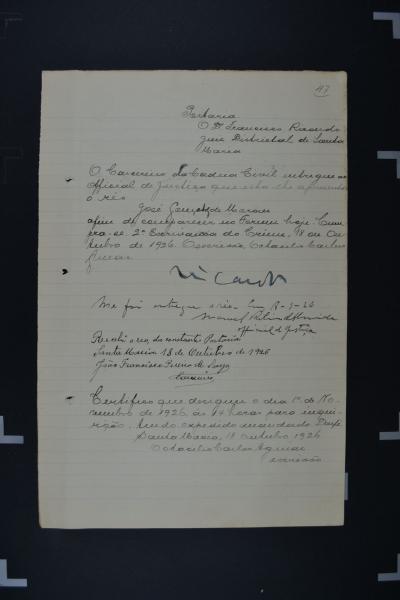 47
Portaria
O Dr Francisco Ricardo
Juiz Districtal de Santa
Maria
O Carcereiro da Cadeia Civil entregue ao
Official de Justiça que esta lhe apresentar
o réo
José Gonçalves de Moraes
afim de comparecer no Forum hoje. Cum
pra-se. 2º Escrivania do Crime, 18 de Ou
tubro de 1926. O escrivão, Octacilio Carlos
Aguiar
Ricardo
Me foi entregue o réo. Em
Manoel
official de Justiça
Recebi o réo, da constante Portaria
Santa Maria 18 de Outubro de 1926
João Francisco
Carcereiro
Certifico que designei o dia 1º de No-
vembro de 1926, ás 14 horas para inqui-
rição, tendo expedido mandado. Dou fé
Santa Maria, 18 outubro 1926
Octacilio Carlos Aguiar
escrivão